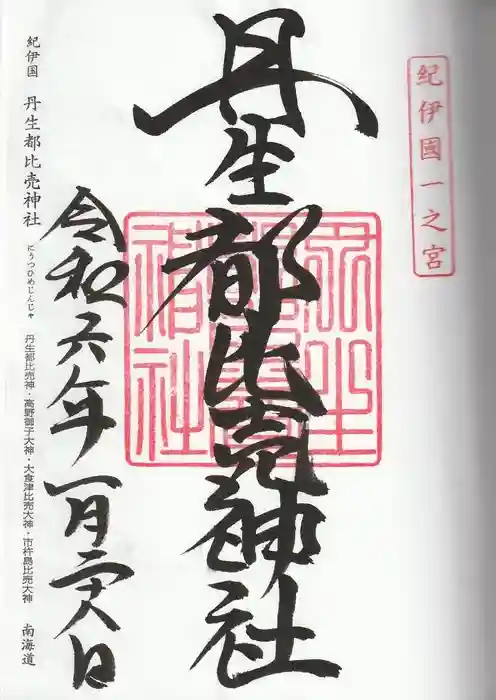 紀伊國一之宮
丹生都比売神社
令和六年一月二十八日
紀伊国 丹生都比売神社 にうつひめじんじゃ 丹生都比売神・高野御子大神・大食津比売大神・市杵島比売大神 南海道